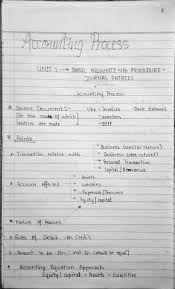 Accounting Process
UNIT 1 → BASIC ACCOUNTING PROCEDURE -
JOURNAL ENTRIES
Accounting Process
Source Document :- Ex - invoices - Bank statement
(On the basis of which - vouchers
entries are made - bill
Points
Business (similar Nature)
Transaction relates with Business (not related)
Personal Transaction
Capital / Revenue
Assets
Account affected Liabilities
Expenses / Incomes
Equity / capital
Nature of Account
Rules of Debit or Credit
Amount to be Dr. and Cr (should be equal)
Accounting Equation Approach
Equity / capital = Assets - Liabilities